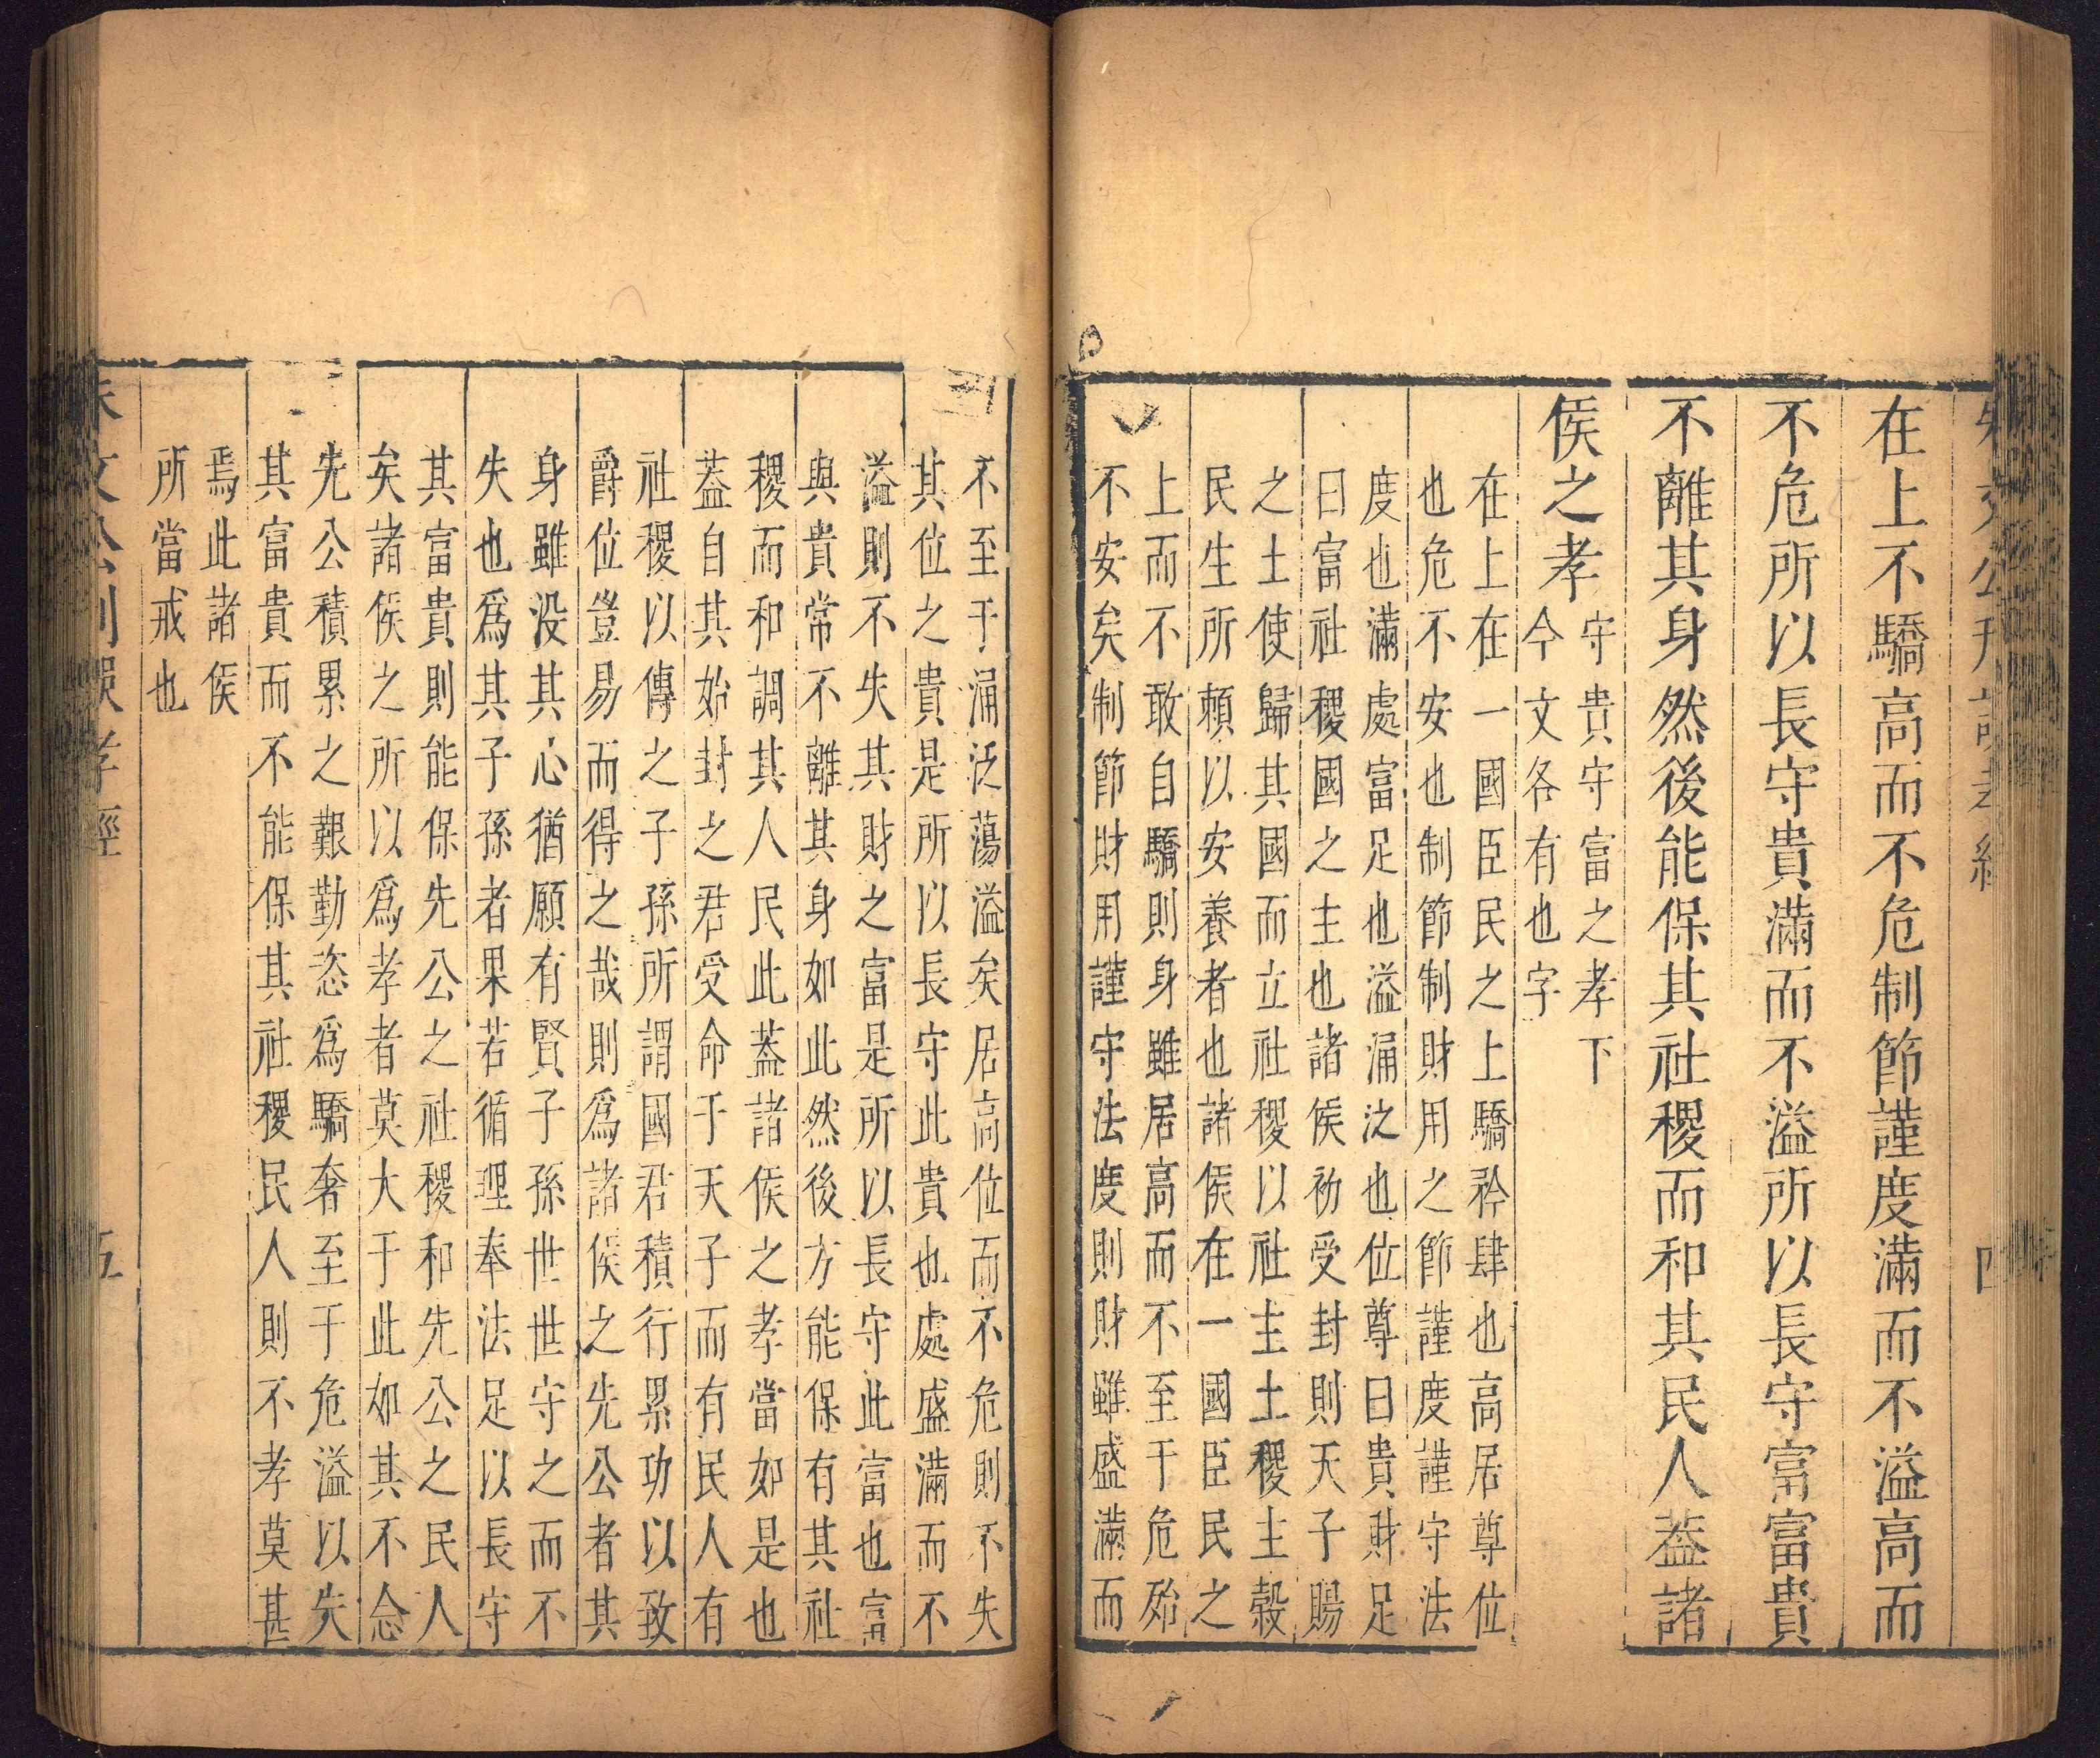 在上不驕高而不危制節謹度滿而不溢高而
不危所以長守貴滿而不溢所以長守富富貴
不離其身然後能保其社稷而和其民人葢諸
侯之孝
守貴守富之孝下
今文各有也字
在上在一國臣民之上驕矜肆也高居尊位
也危不安也制節制財用之節謹度謹守法
度也滿處富足也溢涌泛也位尊曰貴財足
曰富社稷國之主也諸侯初受封則天子賜
之土使歸其國而立社稷以社主土稷主穀
民生所頼以安養者也諸侯在一國臣民之
上而不敢自驕則身雖居高而不至于危殆
不安矣制節財用謹守法度則財雖盛滿而
不至于涌泛蕩溢矣居高位而不危則不失
其位之貴是所以長守此貴也處盛滿而不
溢則不失其財之富是所以長守此富也富
與貴常不離其身如此然後方能保有其社
稷而和調其人民此葢諸侯之孝當如是也
葢自其始封之君受命于天子而有民人有
社稷以傳之子孫所謂國君積行累功以致
爵位豈易而得之哉則爲諸侯之先公者其
身雖没其心猶願有賢子孫世世守之而不
失也爲其子孫者果若循理奉法足以長守
其富貴則能保先公之社稷和先公之民人
矣諸侯之所以爲孝者莫大于此如其不念
先公積累之艱勤恣爲驕奢至于危溢以失
其富貴而不能保其社稷民人則不孝莫甚
焉此諸侯
所當戒也
孝經
五